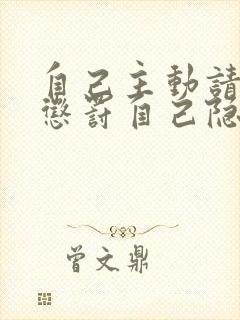 自己主動請
懲罰自己隐
曾文鼎